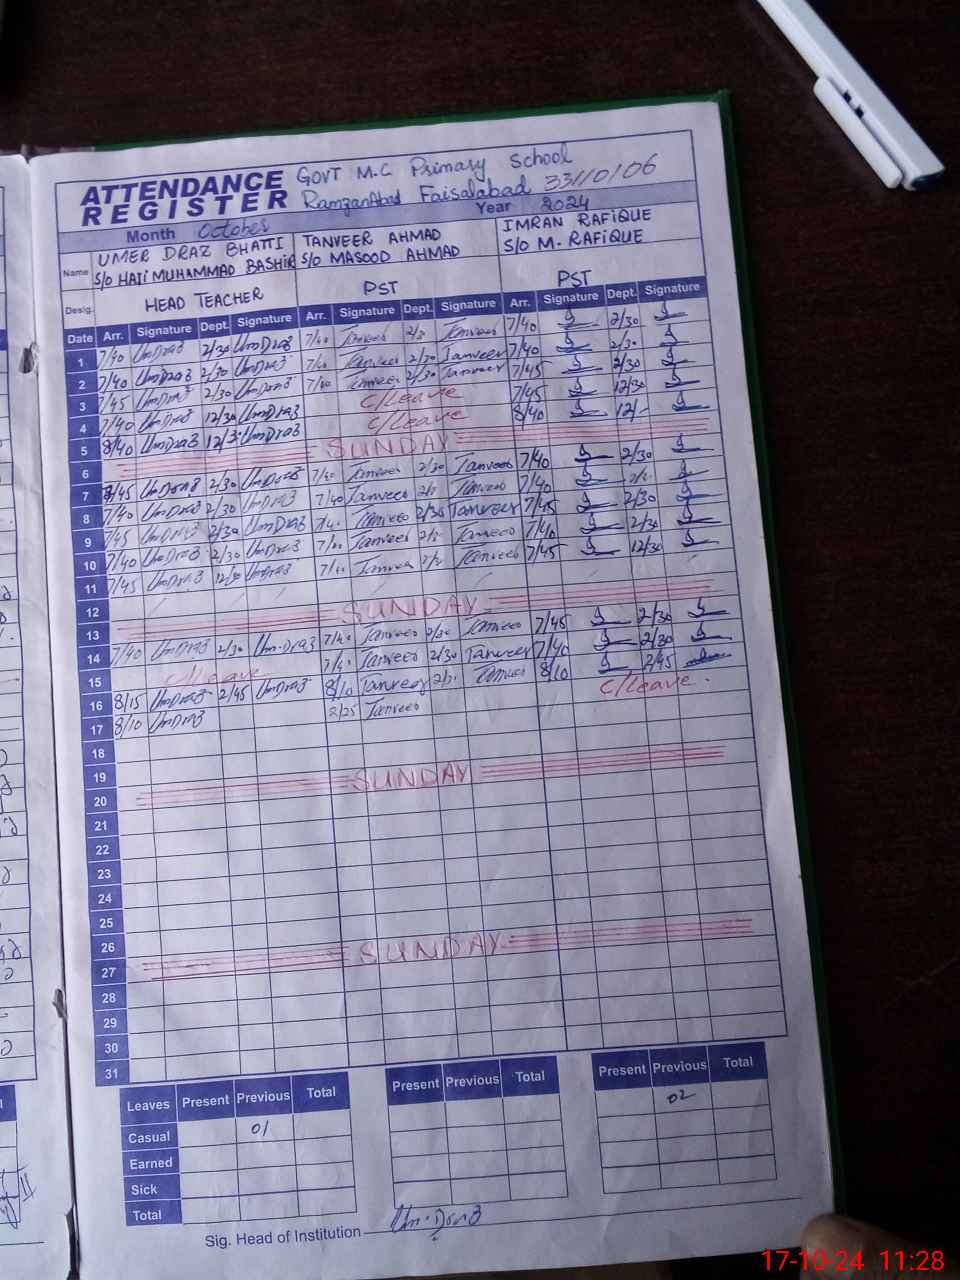 ATTENDANCE REGISTER GOVT M.C Primary School
RamzanAbad Faisalabad 33110106
Month October Year 2024
Name UMER DRAZ BHATTI TANVEER AHMAD IMRAN RAFIQUE
S/O HAJI MUHAMMAD BASHIR S/O MASOOD AHMAD S/O M. RAFIQUE
Desig. HEAD TEACHER PST PST
Date Arr. Signature Dept. Signature Arr. Signature Dept. Signature Arr. Signature Dept. Signature
1 7/40 UmDraz 2/30 UmDraz 7/40 Tanveer 2/30 Tanveer 7/40 2/30
2 7/40 UmDraz 2/30 UmDraz 7/40 Tanveer 2/30 Tanveer 7/40 2/30
3 7/45 UmDraz 2/30 UmDraz 7/40 Tanveer 2/30 Tanveer 7/45 2/30
4 7/40 UmDraz 12/30 UmDraz C/Leave 7/45 12/30
5 8/40 UmDraz 12/3 UmDraz C/Leave 8/40 12/-
6 SUNDAY
7 7/45 UmDraz 2/30 UmDraz 7/40 Tanveer 2/30 Tanveer 7/40 2/30
8 7/40 UmDraz 2/30 UmDraz 7/40 Tanveer Tanveer 7/40
9 7/45 UmDraz 2/30 UmDraz Tanveer 2/30 Tanveer 7/45 2/30
10 7/40 UmDraz 2/30 UmDraz Tanveer Tanveer 7/40 2/30
11 7/45 UmDraz 12/30 UmDraz Tanveer Tanveer 7/45 12/30
12
13 SUNDAY
14 7/40 UmDraz 2/30 Um.Draz 7/40 Tanveer 2/30 Tanveer 7/45 2/30
15 C/Leave Tanveer 2/30 Tanveer 7/40 2/30
16 8/15 UmDraz 2/45 UmDraz 8/10 Tanveer Tanveer 8/10 2/45
17 8/10 UmDraz 8/25 Tanveer C/Leave.
18
19
20 SUNDAY
21
22
23
24
25
26
27 SUNDAY
28
29
30
31
Leaves Present Previous Total Present Previous Total Present Previous Total
Casual 01 02
Earned
Sick
Total
Sig. Head of Institution Um.Draz
17-10-24 11:28